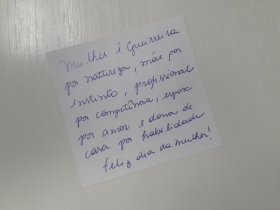 Mulher é Guerreira
por natureza, mãe por
instinto, profissional
por competência, esposa
por amor e dona de
casa por habilidade
feliz dia da mulher!